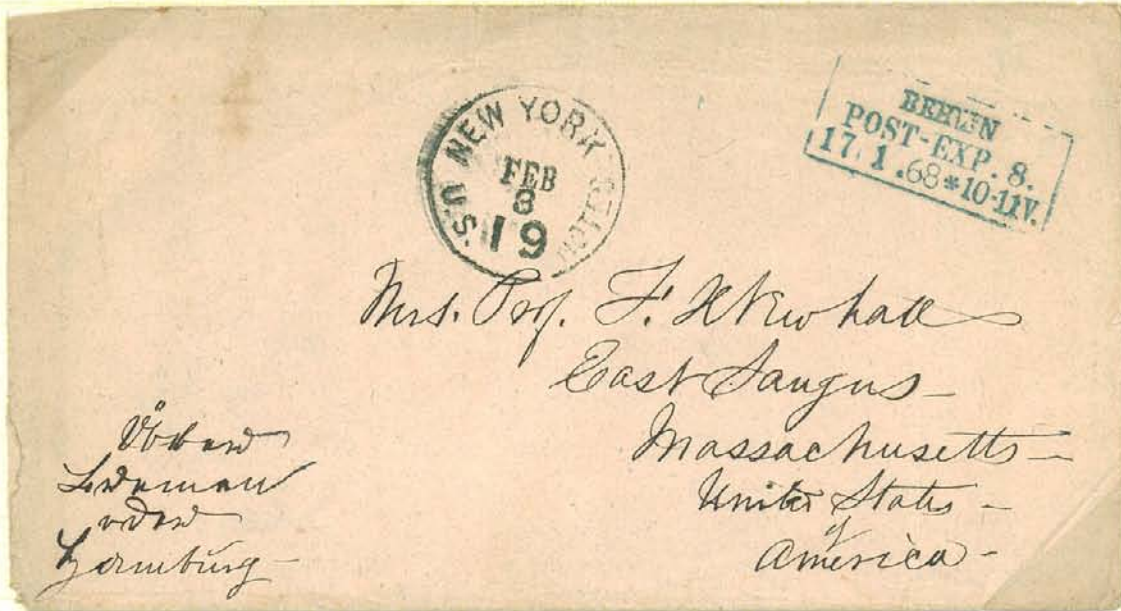 U.S. NEW YORK
FEB
3
19
BERLIN
POST-EXP. 8.
17. 1. 68 * 10-11V.
Mrs. Prof. F. H Newhall
East Saugus -
Massachusetts -
United States -
of
America -
Über
Bremen
oder
Hamburg -